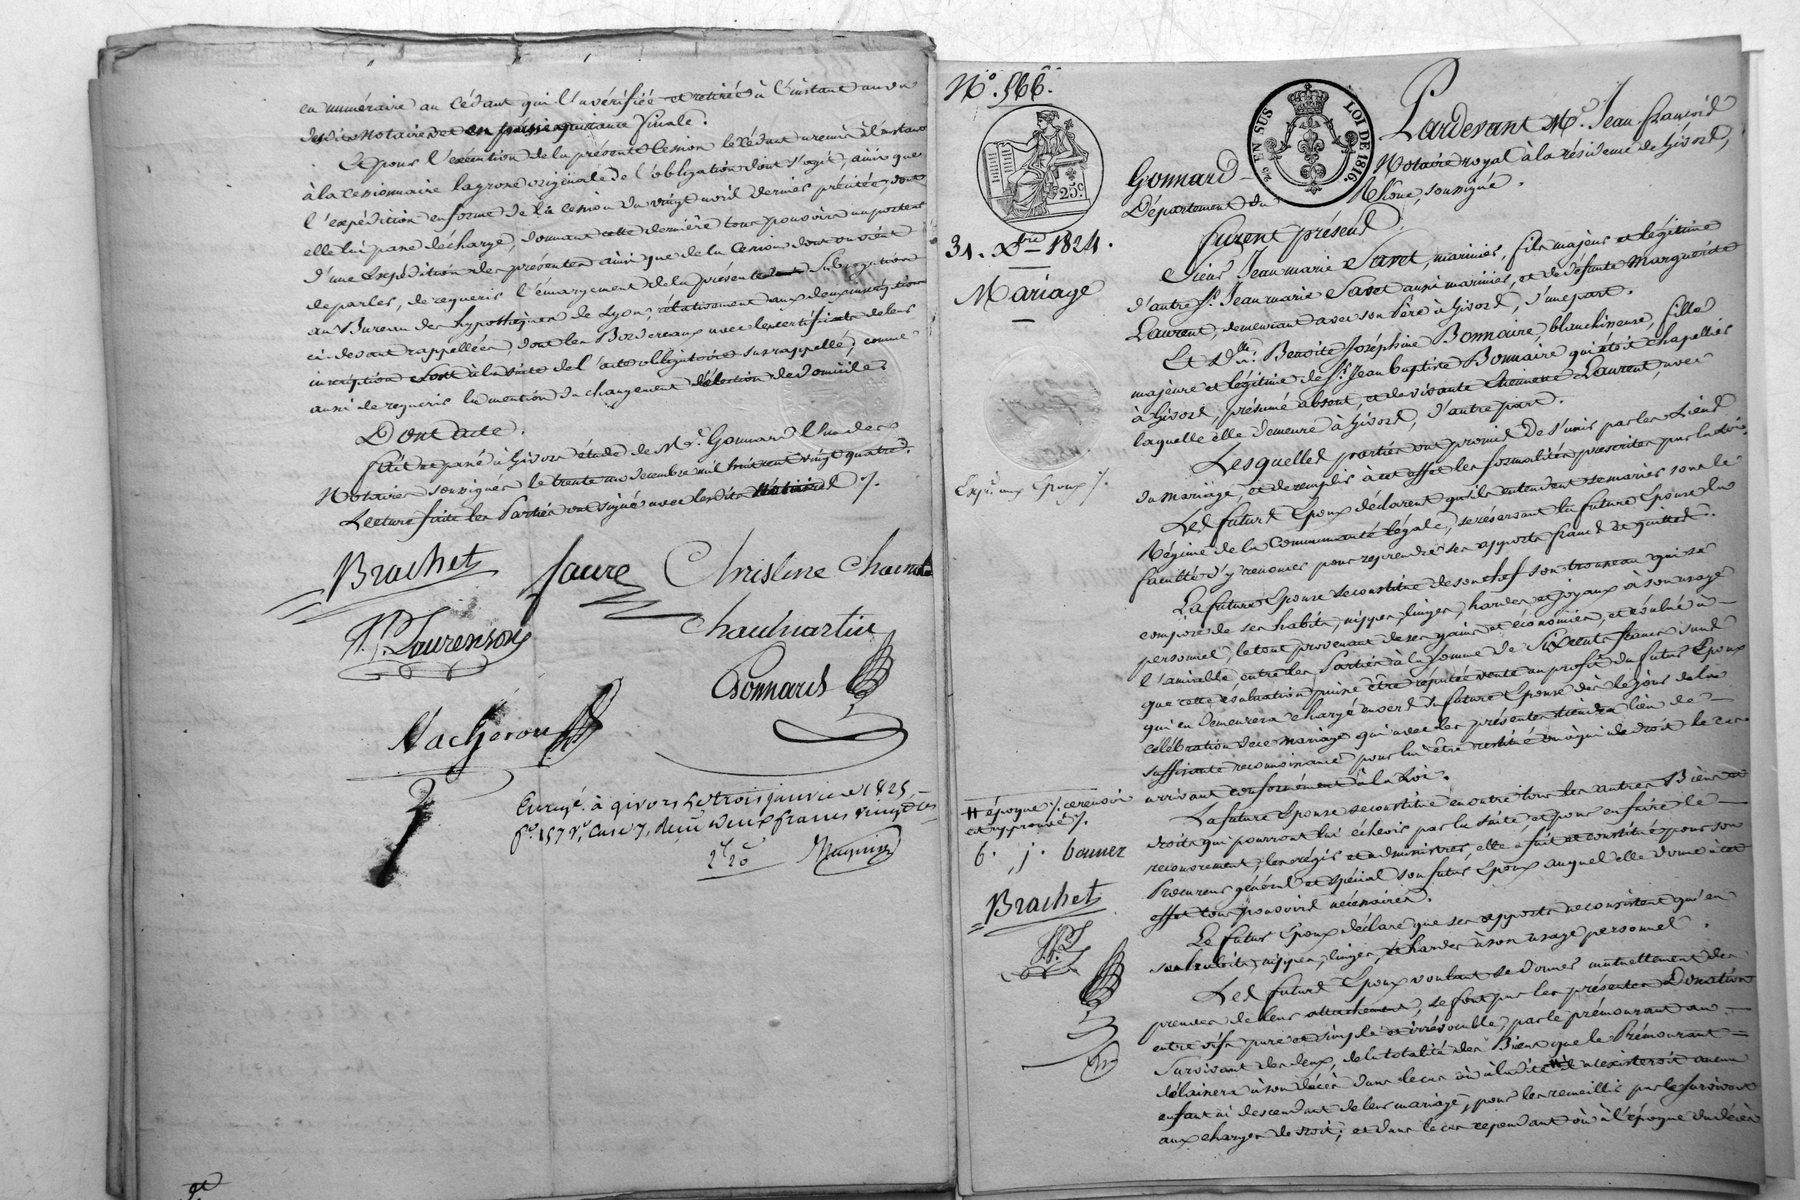 en numéraire au cédant qui l'a vérifiée et retirée à l'instant au vu
desdits Notaires et en passe quittance finale.
Et pour l'exécution de la présente cession le cédant a remis à l'instant
à la cessionnaire la grosse originale de l'obligation dont s'agit, ainsi que
l'expédition en forme de la cession du vingt avril dernier précitée, dont
elle lui passe décharge, donnant cette dernière tous pouvoirs au porteur
d'une Expédition des présentes ainsi que de la Cession dont on vient
de parler, de requérir l'émargement de la présente Subrogation
au Bureau des hypothèques de Lyon, relativement aux deux inscriptions
ci-devant rappellées, dont les Bordereaux avec les certificats de leur
inscription sont à la suite de l'acte obligatoire susrappellé, comme
aussi de requérir la mention du changement d'élection de domicile.
Dont acte.
fait et passé à Givors étude de Me. Gonnard l'un des
Notaires soussignés le trente un décembre mil huit cent vingt quatre.
Lecture faite les Parties ont signé avec lesdits Notaires /.
Brachet faure Christine
P. Laurenson
Gonnard
Enregé. à givors le trois janvier 1825,
fo. 157 vo. Case 7, Reçu deux francs vingt ces
2f 20c
No. 566.
25c.
31. Xbre 1824.
Mariage
Exp. aux Epoux /.
EN SUS
LOI DE 1816.
Pardevant Me. Jean françois
Gonnard Notaire royal à la résidence de Givors,
Département du Rhône, soussigné.
furent présens
Sieur Jean marie Savet, marinier, fils majeur et légitime
d'autre Sr. Jean marie Savet aussi marinier, et de défunte Marguerite
Laurent, demeurant avec son Père à Givors, d'une part.
Et Dlle. Benoite Joséphine Bonnaire, blanchisseuse, fille
majeure et légitime de Sr. Jean baptiste Bonnaire qui étoit chapelier
à Givors, présumé absent, et de vivante Etiennette Laurent, avec
laquelle elle demeure à Givors, d'autre part.
Lesquelles parties ont promis de s'unir par les Liens
du mariage, et de remplir à cet effet les formalités prescrites par la Loi.
Les futurs Epoux déclarent qu'ils entendent se marier sous le
Régime de la Communauté légale, se réservant la future Epouse la
faculté d'y renoncer pour reprendre ses apports francs et quittes.
La future Epouse se constitue de son chef son trousseau qui se
compose de ses habits, nippes, linges, hardes et joyaux à son usage
personnel, le tout provenant de ses gains et économies, et évalué à
l'amiable entre les Parties à la somme de Six cents francs sans
que cette évaluation puisse être réputée vente au profit du futur Epoux
qui en demeurera chargé envers la future Epouse dès le jour de la
célébration de ce mariage qui avec les présentes tiendra lieu de
suffisante reconnoissance pour lui être restitué ou à qui de droit le cas
arrivant conformément à la Loi.
La future Epouse se constitue en outre tous les autres Biens et
droits qui pourront lui échevir par la suite et pour en faire le
recouvrement, les régir et administrer, elle a fait et constitué pour son
Procureur général et spécial son futur Epoux auquel elle donne à cet
effet tous pouvoirs nécessaires.
Le futur Epoux déclare que ses apports ne consistent qu'en
ses habits, nippes, linges, et hardes à son usage personnel.
Les futurs Epoux voulant se donner mutuellement des
preuves de leur attachement, se font par les présentes Donation
entre vifs pure et simple et irrévocable, par le prémourant au
Survivant des deux, de la totalité des Biens que le Prémourant
délaissera à son décès dans le cas où à ladite # il n'existeroit aucun
enfant ni descendant de leur mariage, pour les recueillir par le Survivant
aux charges de droit; et dans le cas cependant où à l'époque du décès
# époque /. ce renvoi
approuvé /.
b. j. bonner
Brachet